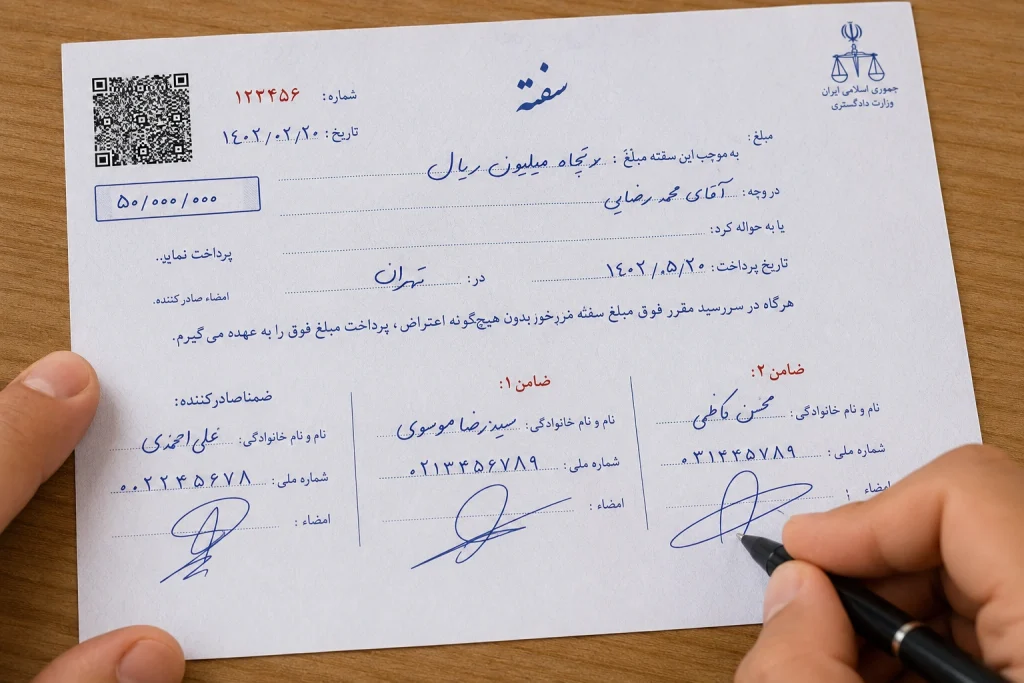 سفته
جمهوری اسلامی ایران
وزارت دادگستری
شماره: ۱۲۳۴۵۶
تاریخ: ۱۴۰۲/۰۲/۲۰
مبلغ:
به موجب این سفته مبلغ: میلیون ریال
۵۰/۰۰۰/۰۰۰
در وجه: آقای محمد رضایی
یا به حواله کرد:
پرداخت نمایید.
تاریخ پرداخت: ۱۴۰۲/۰۵/۲۰ در: تهران
امضاء صادر کننده.
هرگاه در سررسید مقرر فوق مبلغ سفته بدون هیچ‌گونه اعتراض، پرداخت مبلغ فوق را به عهده می‌گیرم.
ضامن ۲:
نام و نام خانوادگی: محسن کاظمی
شماره ملی: ۰۳۱۴۴۵۷۸۹
امضاء
ضامن ۱:
نام و نام خانوادگی: سیدرضا موسوی
شماره ملی: ۰۲۱۳۴۵۶۷۸۹
امضاء:
ضمناصادرکننده:
نام و نام خانوادگی: علی احمدی
شماره ملی: ۰۰۲۲۴۵۶۷۸
امضاء: